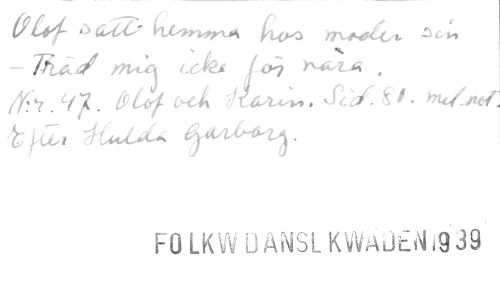 Olof satt hemma hos moder sin
- Träd mig icke för nära.
N:r. 47. Olof och Karin. Sid. 80. mel. not
Efter Hulda Garborg.
FOLKWDANSLKWADEN 1939